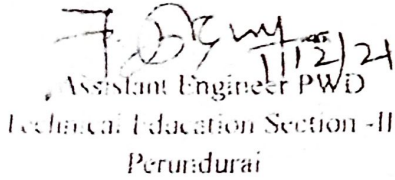 11/12/21
Assistant Engineer PWD
Technical Education Section -II
Perundurai